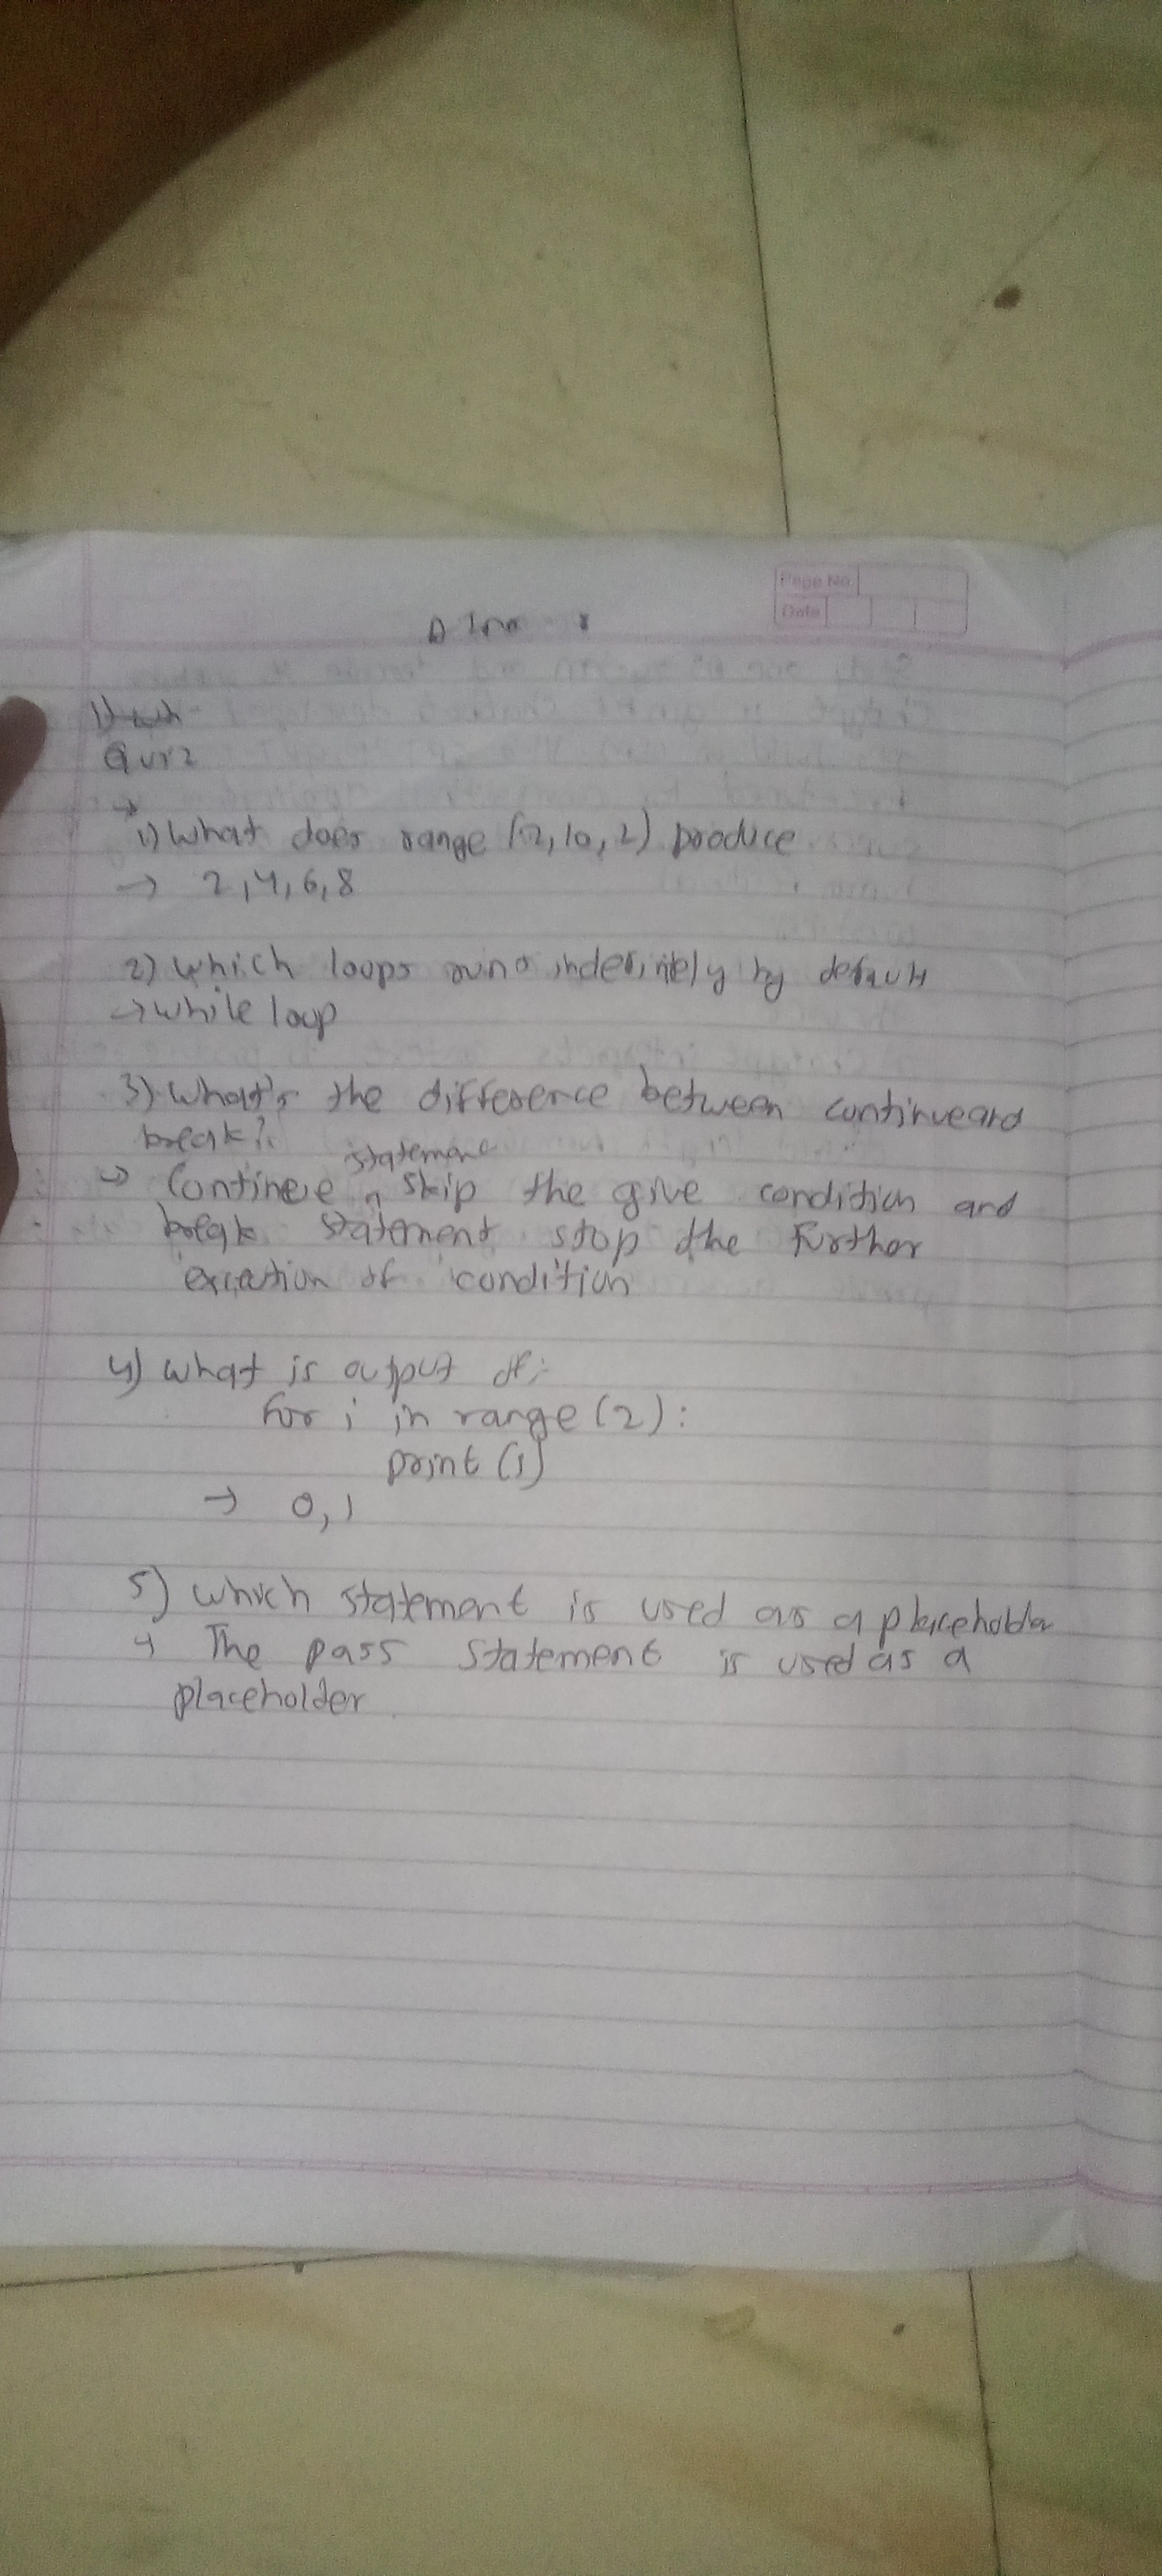 Page No.
Date
Quiz
1) What does range (2,10,2) produce
→ 2,4,6,8
2) which loops runs indefinitely by default
→ while loop
3) What's the difference between continue and
break?
statement
→ Continue skip the give condition and
break statement stop the further
of condition
4) what is output of:-
for i in range (2):
print (i)
→ 0,1
5) which statement is used as a placeholder
The pass statement is used as a
placeholder